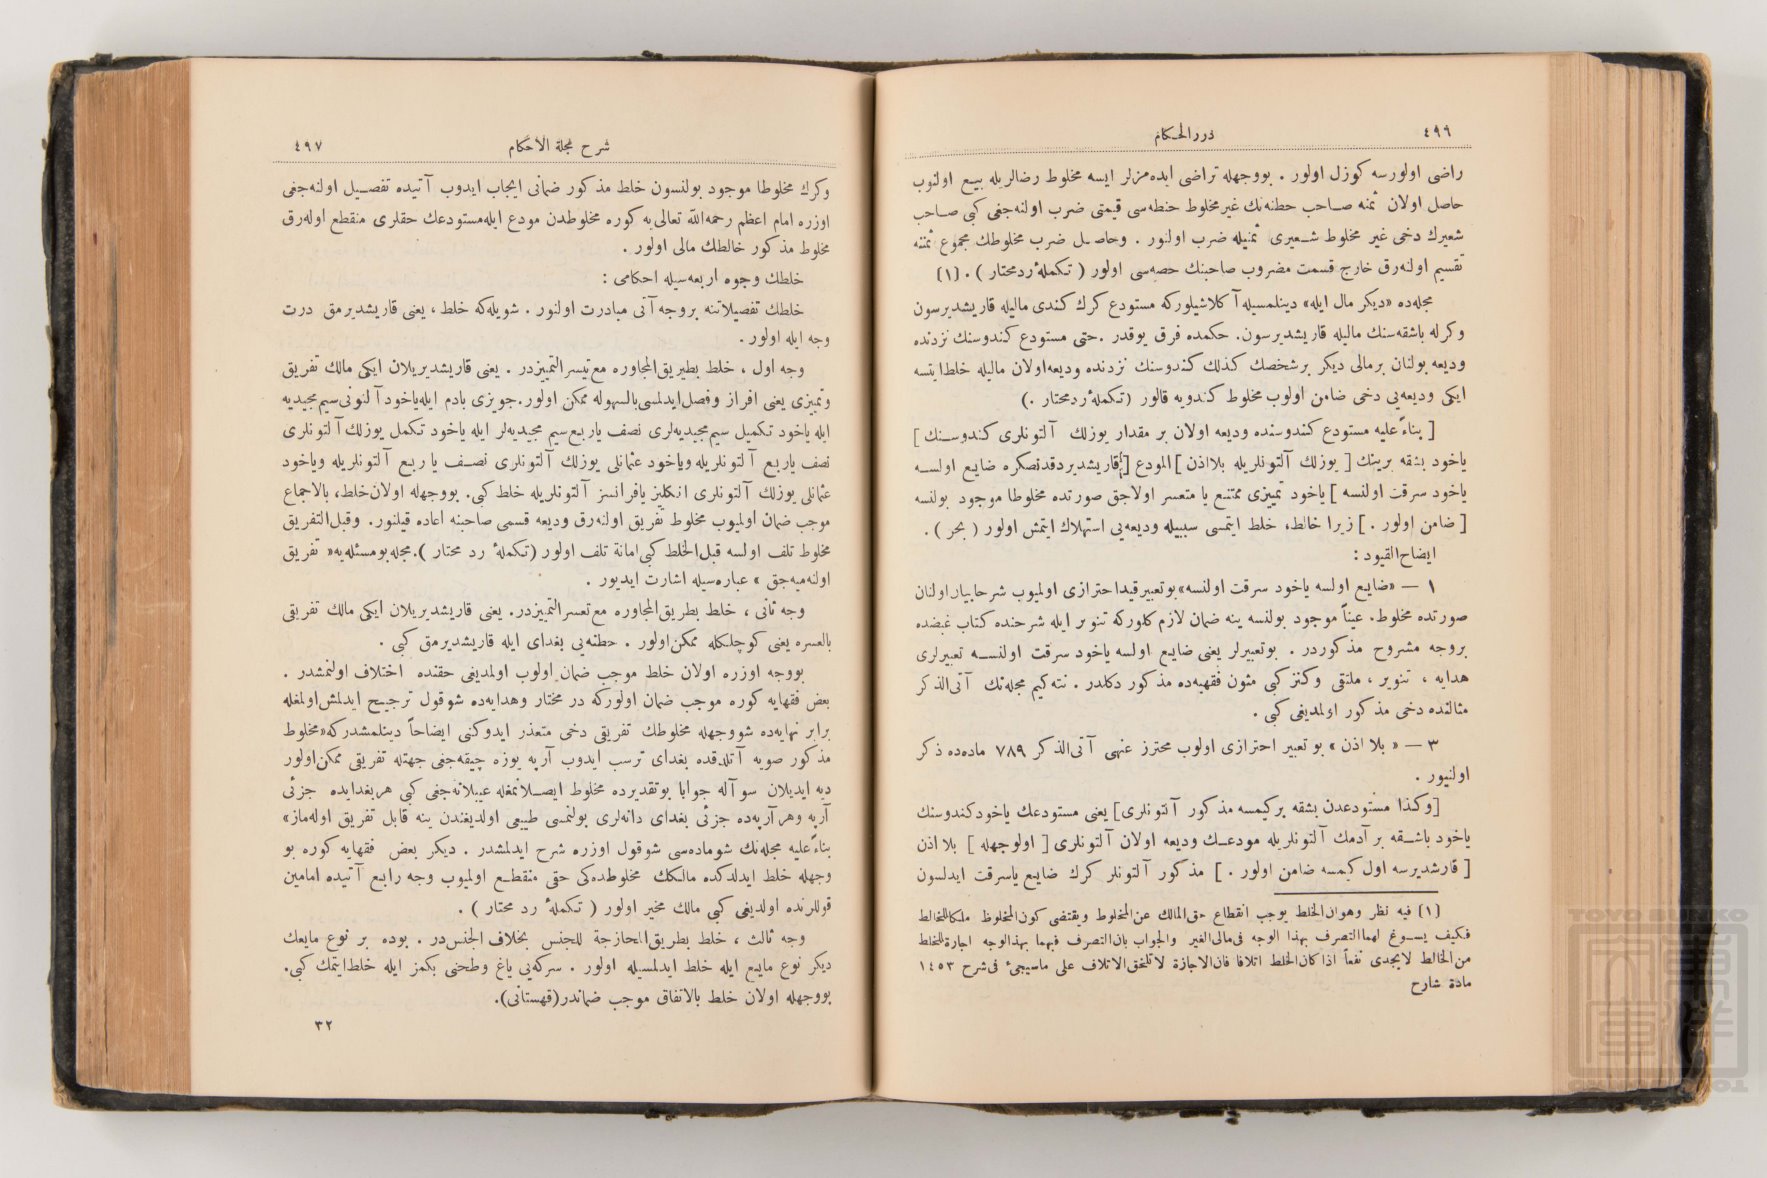 ٤٩٩ دررالحكام
راضی اولورسه كوزل اولور . بووجهله تراضی ایده‌مزلر ایسه مخلوط رضالریله بیع اولنوب
حاصل اولان ثمنه صاحب حطنه‌نك غیرمخلوط حنطه‌سی قیمتی ضرب اولنه‌جغی كبی صاحب
شعیرك دخی غیر مخلوط شعیری ثمنیله ضرب اولنور . وحاصل ضرب مخلوطك مجموع ثمننه
تقسیم اولنه‌رق خارج قسمت مضروب صاحبنك حصه‌سی اولور ( تكملهٔ ردمختار ) . (١)
مجله‌ده «دیكر مال ایله» دینلمسیله آكلاشیلوركه مستودع كرك كندی مالیله قاریشدیرسون
وكرله باشقه‌سنك مالیله قاریشدیرسون. حكمده فرق یوقدر .حتی مستودع كندوسنك نزدنده
ودیعه بولنان برمالی دیكر برشخصك كذلك كندوسنك نزدنده ودیعه‌اولان مالیله خلط‌ایتسه
ایكی ودیعه‌یی دخی ضامن اولوب مخلوط كندویه قالور (تكملهٔ ردمختار .)
[ بناءً علیه مستودع كندوسنده ودیعه اولان بر مقدار یوزلك آلتونلری كندوسنك ]
یاخود بشقه برینك [ یوزلك آلتونلریله بلااذن ] المودع [ قاریشدیردقدنصكره ضایع اولسه
یاخود سرقت اولنسه ] یاخود تمییزی ممتنع یا متعسر اولاجق صورتده مخلوطا موجود بولنسه
[ ضامن اولور . ] زیرا خالط، خلط ایتمسی سببیله ودیعه‌یی استهلاك ایتمش اولور ( بحر ) .
ایضاح‌القیود :
١ — «ضایع اولسه یاخود سرقت اولنسه» بوتعبیرقیداحترازی اولمیوب شرحابیان‌اولنان
صورتده مخلوط. عیناً موجود بولنسه ینه ضمان لازم كلوركه تنویر ایله شرحنده كتاب غبضده
بروجه مشروح مذكوردر . بوتعبیرلر یعنی ضایع اولسه یاخود سرقت اولنسه تعبیرلری
هدایه ، تنویر ، ملتقی وكنز كبی متون فقهیه‌ده مذكور دكلدر . نته‌كیم مجله‌نك آتی‌الذكر
مثالنده دخی مذكور اولمدیغی كبی .
٣ — « بلا اذن » بو تعبیر احترازی اولوب محترز عنهی آتی‌الذكر ٧٨٩ ماده‌ده ذكر
اولنیور .
[وكذا مستودعدن بشقه بركیمسه مذكور آلتونلری] یعنی مستودعك یاخودكندوسنك
یاخود باشقه بر آدمك آلتونلریله مودعك ودیعه اولان آلتونلری [ اولوجهله ] بلااذن
[ قارشدیرسه اول كیمسه ضامن اولور . ] مذكور آلتونلر كرك ضایع یاسرقت ایدلسون
(١) فیه نظر وهوان‌الخلط یوجب انقطاع حق‌المالك عن‌المخلوط ویقتضی كون‌المخلوط ملكاللخالط
فكیف یسوغ لهماالتصرف بهذا الوجه فی‌مالی‌الغیر والجواب بان‌التصرف فیهما بهذالوجه اجازة‌للخلط
من‌الخالط لایجدی نفعاً اذاكان‌الخلط اتلافا فان‌الاجازة لاتلحق‌الاتلاف علی ماسیجیٔ فی‌شرح ١٤٥٣
مادة شارح
شرح مجلة الاحكام ٤٩٧
وكرك مخلوطا موجود بولنسون خلط مذكور ضمانی ایجاب ایدوب آتیده تفصیل اولنه‌جغی
اوزره امام اعظم رحمه‌الله تعالی‌یه كوره مخلوطدن مودع ایله‌مستودعك حقلری منقطع اوله‌رق
مخلوط مذكور خالطك مالی اولور .
خلطك وجوه اربعه‌سیله احكامی :
خلطك تفصیلاتنه بروجه آتی مبادرت اولنور . شویله‌كه خلط ، یعنی قاریشدیرمق درت
وجه ایله اولور .
وجه اول ، خلط بطیریق‌المجاوره مع‌تیسرالتمییزدر . یعنی قاریشدیریلان ایكی مالك تفریق
وتمییزی یعنی افراز وفصل‌ایدلمسی‌بالسهوله ممكن اولور.جویزی بادم ایله‌یاخود آلتونی‌سیم‌مجیدیه
ایله یاخود تكمیل سیم‌مجیدیه‌لری نصف یاربع‌سیم مجیدیه‌لر ایله یاخود تكمل یوزلك‌آلتونلری
نصف یاربع آلتونلریله ویاخود عثمانلی یوزلك آلتونلری نصف یاربع آلتونلریله ویاخود
عثمانلی یوزلك آلتونلری انكلیز یافرانسز آلتونلریله خلط كبی. بووجهله اولان‌خلط، بالاجماع
موجب ضمان اولمیوب مخلوط تفریق اولنه‌رق ودیعه قسمی صاحبنه اعاده قیلنور. وقبل‌التفریق
مخلوط تلف اولسه قبل‌الخلط كبی‌امانة تلف اولور (تكملهٔ رد محتار ).مجله‌بومسئله‌یه« تفریق
اولنه‌میه‌جق » عباره‌سیله اشارت ایدیور .
وجه ثانی ، خلط بطریق‌المجاوره مع‌تعسرالتمییزدر. یعنی قاریشدیریلان ایكی مالك تفریقی
بالعسره یعنی كوچلكله ممكن‌اولور . حطنه‌یی بغدای ایله قاریشدیرمق كبی .
بووجه اوزره اولان خلط موجب ضمان اولوب اولمدیغی حقنده اختلاف اولنمشدر .
بعض فقهایه كوره موجب ضمان اولوركه در مختار وهدایه‌ده شوقول ترجیح ایدلمش‌اولمغله
برابر نهایه‌ده شووجهله مخلوطك تفریقی دخی متعذر ایدوكنی ایضاحاً دینلمشدركه«مخلوط
مذكور صویه آتلدقده بغدای ترسب ایدوب آرپه یوزه چیقه‌جغی جهتله تفریقی ممكن‌اولور
دیه ایدیلان سوآله جوابا بوتقدیرده مخلوط ایصلانمغله عیبلانه‌جغی كبی هربغدایده جزئی
آرپه وهرآرپه‌ده جزئی بغدای دانه‌لری بولنمسی طبیعی اولدیغندن ینه قابل تفریق اوله‌ماز»
بناءً علیه مجله‌نك شوماده‌سی شوقول اوزره شرح ایدلمشدر . دیكر بعض فقهایه كوره بو
وجهله خلط ایدلدكده مالكك مخلوطده‌كی حقی منقطع اولمیوب وجه رابع آتیده امامین
قوللرنده اولدیغی كبی مالك مخیر اولور ( تكملهٔ رد محتار ) .
وجه ثالث ، خلط بطریق‌الممازجة للجنس بخلاف الجنس‌در . بوده بر نوع مایعك
دیكر نوع مایع ایله خلط ایدلمسیله اولور . سركه‌یی یاغ وطحنی بكمز ایله خلط‌ایتمك كبی.
بووجهله اولان خلط بالاتفاق موجب ضماندر(قهستانی).
٣٢
TOYO BUNKO